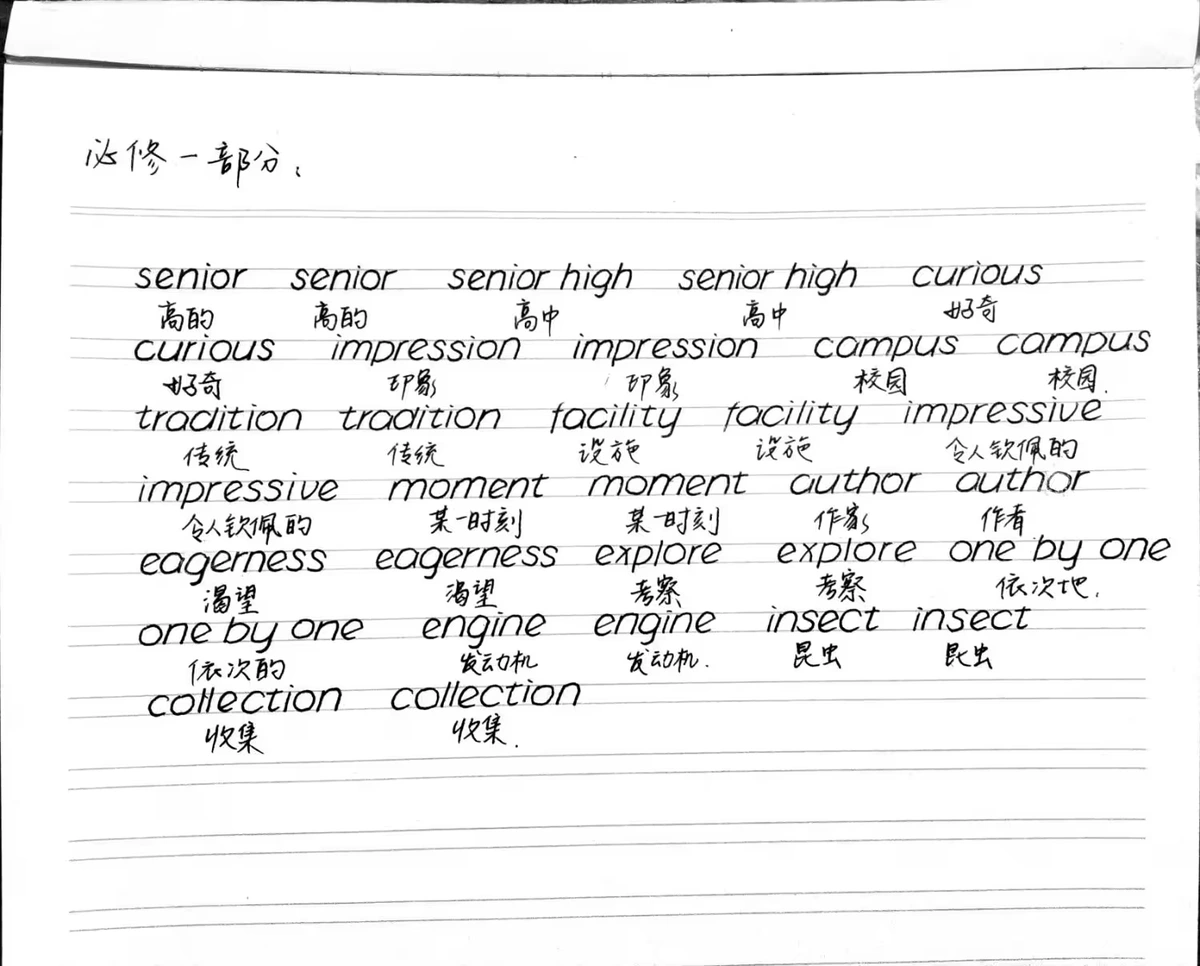 必修一部分、
senior senior senior high senior high curious
高的 高的 高中 高中 好奇
curious impression impression campus campus
好奇 印象 印象 校园 校园.
tradition tradition facility facility impressive
传统 传统 设施 设施 令人钦佩的
impressive moment moment author author
令人钦佩的 某一时刻 某一时刻 作家 作者
eagerness eagerness explore explore one by one
渴望 渴望 考察 考察 依次地.
one by one engine engine insect insect
依次的 发动机 发动机. 昆虫 昆虫
collection collection
收集 收集.